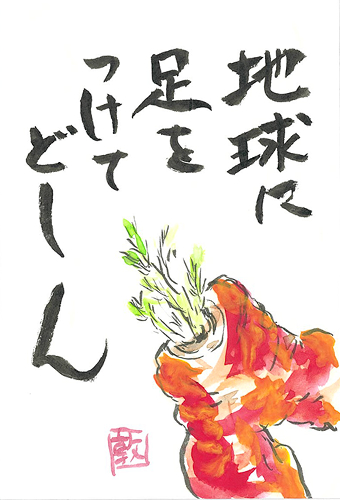 地球に
足を
つけて
どーん